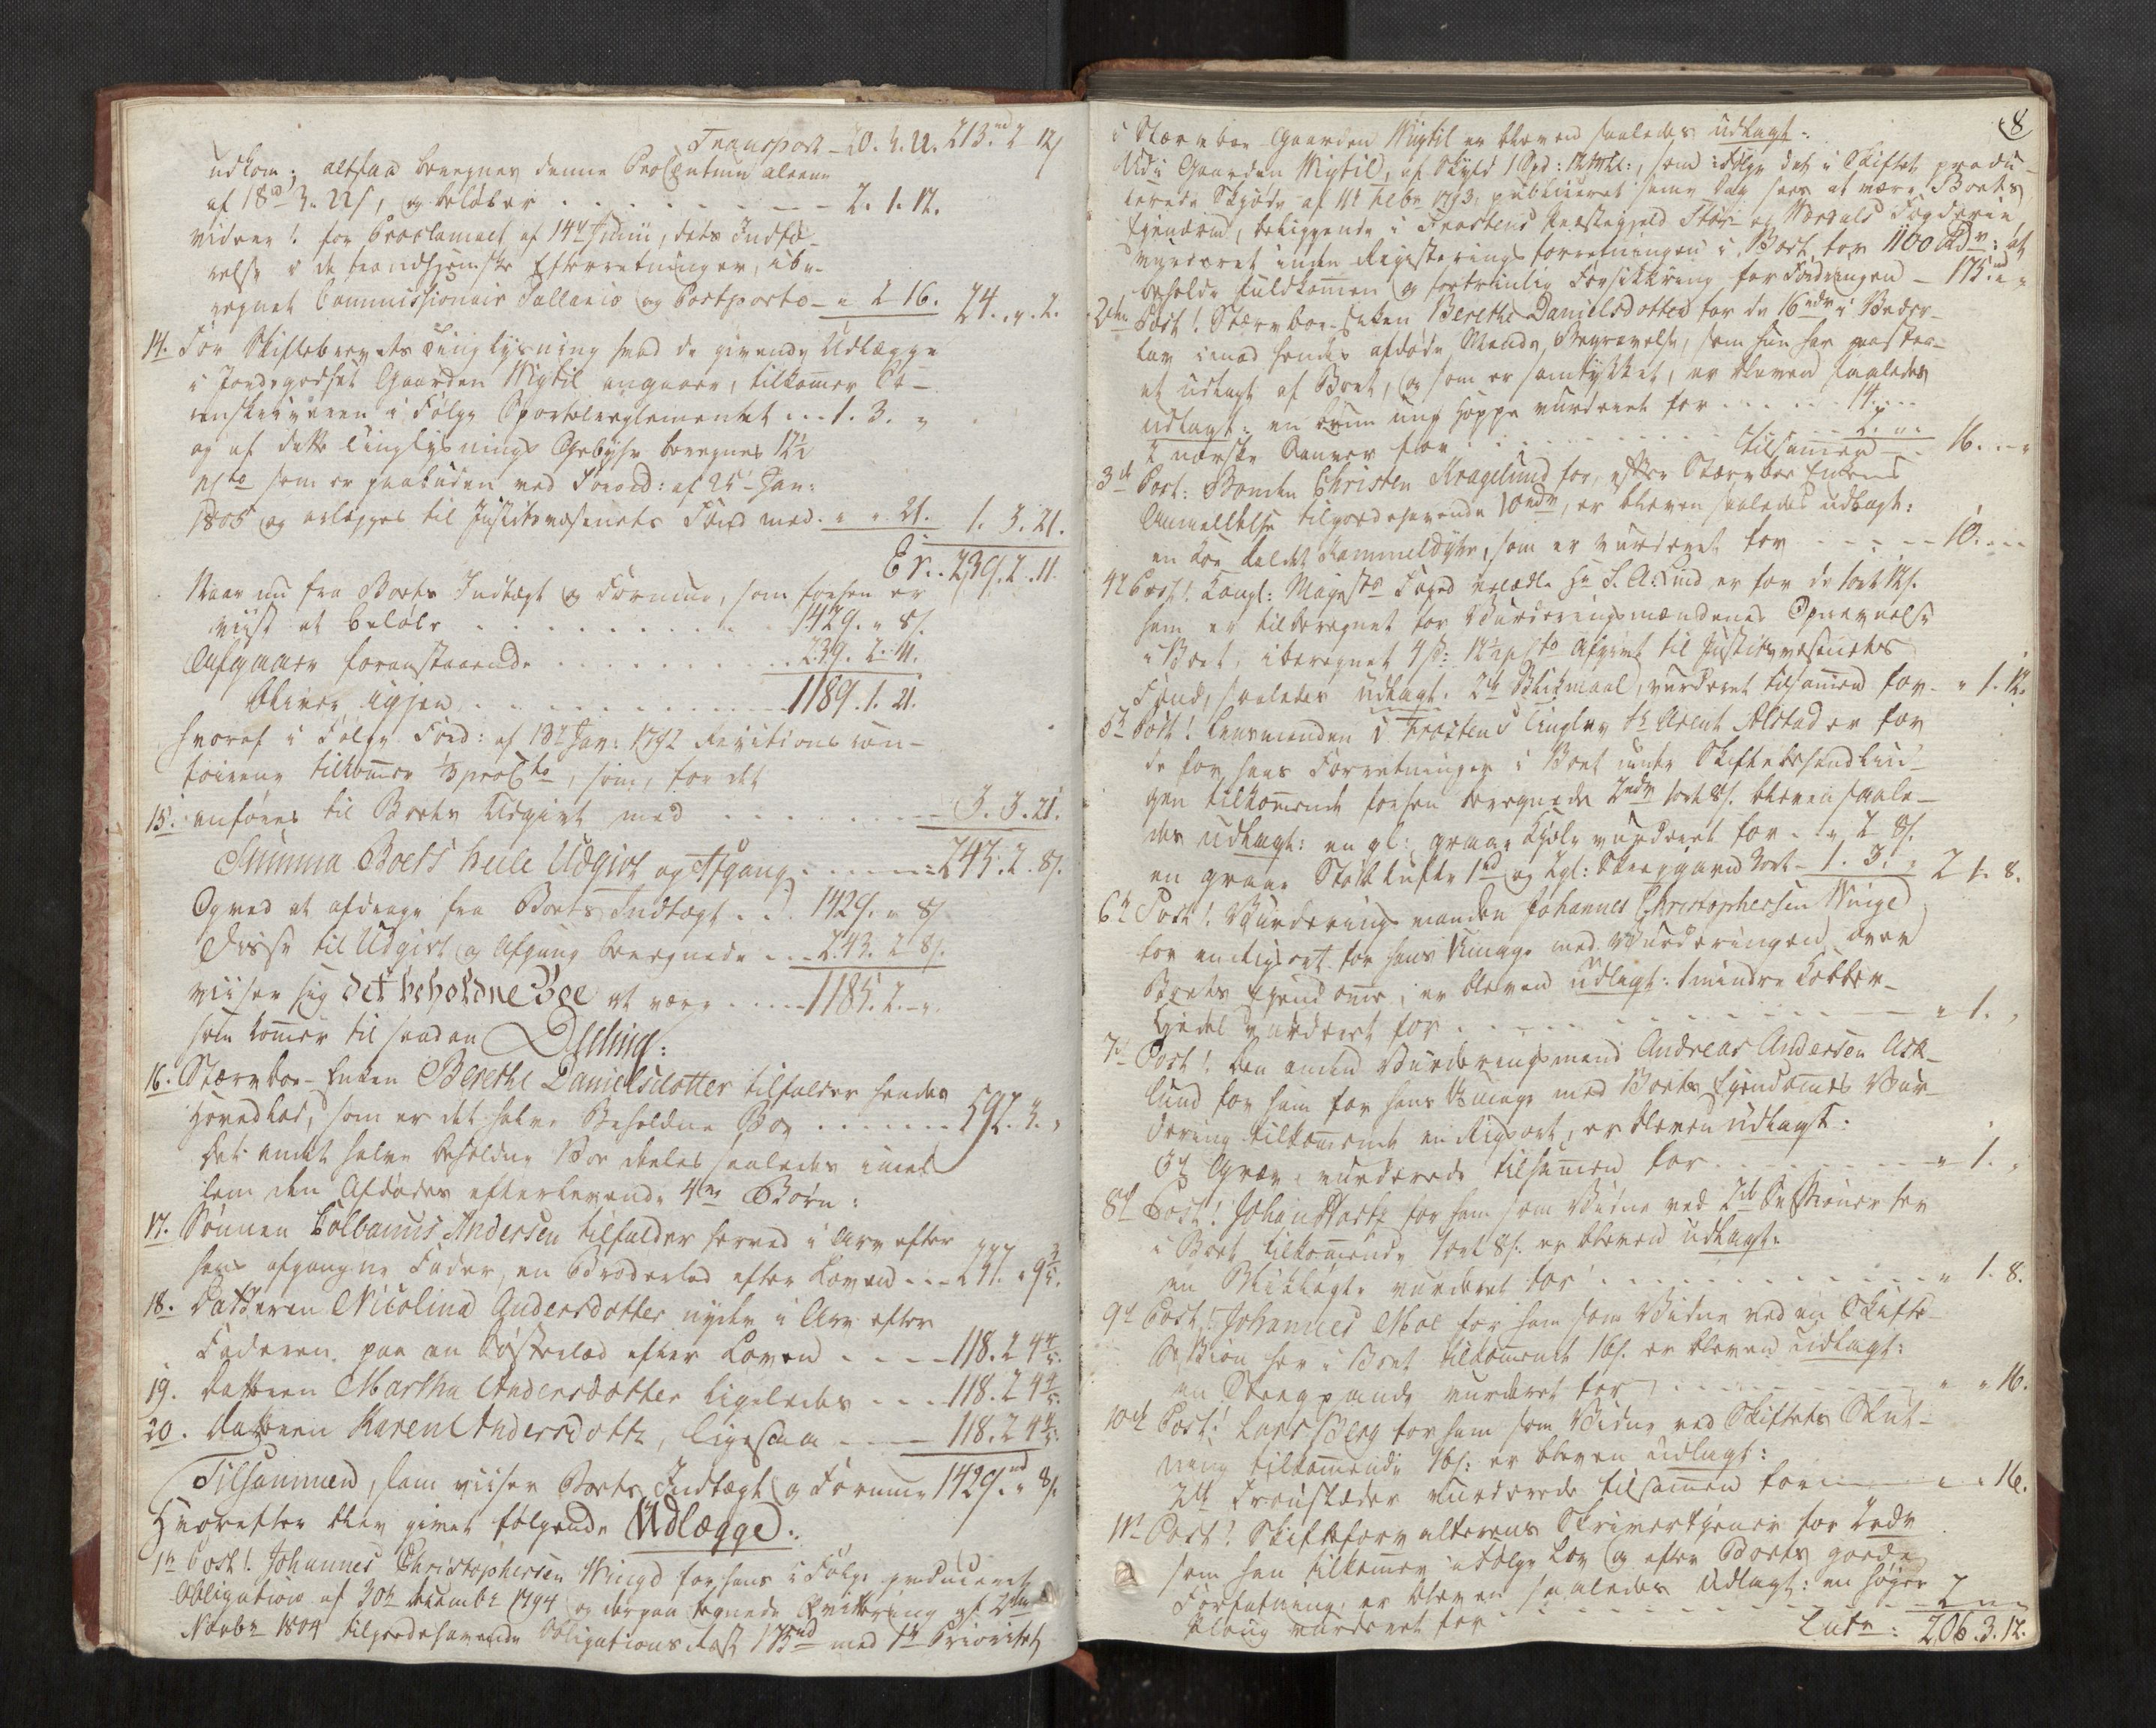 Transport - 20. 4. 22. 213. 2 12/
udkom; altsaa beregnes denne Procentum alene
af 18 rd 3. 22/, og beløber - 2. 1. 12.
Videre! for Proclamaet af 14de Junii, dets Indfø-
relse i de trondhjemske Efterretninger, ibe-
regnet Commissionair Sallario og Postporto - " 2 16. 24. " 2.
14. For Skiftebrevets Tinglysning hvad de givende Udlægge
i Jordegodset Gaarden Wigtil angaaer, tilkommer So-
renskriveren i Følge Sportelreglementet - 1. 3. "
og af dette Tinglysnings Gebyhr beregnes 12½
pCto som er paabuden ved Forord: af 25 Jan:
1805 og erlægges til Justitsvæsenets Fond med. " " 21. 1. 3. 21.
Er. 239. 2. 11.
Naar nu fra Boets Indtægt og Formue, som foran er
viist at beløbe 1429. " 8/.
Afgaaer foranstaaende 239. 2. 11.
bliver igjen 1189. 1. 21.
hvoraf i Følge Ford: af 13de Jan: 1792 Revitions con-
toirene tilkommer ⅓ proCto, som, for det
15. anføres til Boets Udgivt med 3. 3. 21.
Summa Boets heele Udgivt og Afgang 243. 2. 8/.
Og ved at afdrage fra Boets Indtægt 1429. " 8/
disse til Udgivt og Afgang beregnede 243. 2 8/.
viiser sig det beholdne Boe at være 1185. 2. "
som kommer til saadan Deeling:
16. Stervboe-Enken Berethe Danielsdotter tilfalder hendes
Hovedlod, som er det halve Beholdne Boe 592. 3. "
Det andet halve beholdne Boe deeles saaledes imel
lem den Afdødes efterlevende 4re Børn:
17. Sønnen Colbanus Andersen tilfalder herved i Arv efter
hans afgangne Fader, en Broderlod efter Loven 237. " 9 3/5.
18. Datteren Nicolina Andersdotter nyder i Arv efter
Faderen paa en Søsterlod efter Loven 118. 2 4 4/5.
19. Datteren Martha Andersdotter ligeledes 118. 2 4 4/5.
20. Datteren Karen Andersdotter, ligesaa 118. 2 4 4/5.
Tilsammen, som viiser Boets Indtægt og Formue 1429 rd " 8/.
Hvorefter blev givet følgende Udlægge:
1te Post! Johannes Christophersen Winge for hans i Følge produceret
Obligation af 30te Decembr 1794 og derpaa tegnede Qvittering af 2den
Novbr 1804 tilgodehavende Obligations Rest 175 rd med 1te Prioritet
8
i Stervboe Gaarden Wigtil er bleven saaledes udlagt:
Udi Gaarden Wigtil, af Skyld 1 Spd: som ifølge det i Skiftet produ-
cerede Skjøde af 11te Febr 1793, publiceret samme Dag sees at være Boets
Ejendom, beliggende i Frostens Præstegjeld Stør- og Værdals Fogderie,
vurderet under Registerings forretningen i Boet for 1100 Rdr: at
beholde fuldkommen og fortrinlig Forsikkring for Fordringen - 175. " "
2den Post! Stervboe-Enken Berethe Danielsdotter for de 16 rdr i Veder-
lav imod hendes afdøde Mands Begravelse, som hun har paastaa-
et udlagt af Boet, og som er samtykket, er bleven saaledes
udlagt: en brun ung Hoppe vurderet for 14. " "
2 norske Tønner for 2. " "
Tilsammen 16. " "
3de Post: Bonden Christen Kragelund for, efter Stervboe Enkens
Anmeldelse tilgodehavende 10 rdr, er bleven saaledes udlagt:
en Koe kaldet Kammeldyhr, som er vurderet for 10. " "
4de Post! Kongl: Majestts Foged velædle Hr S. A: Lind er for de 1ort 12/.
ham er tilberegnet for Vurderingsmændenes Opnævnelse
i Boet, iberegnet 4/: 12½ pCto Afgivt til Justitsvæsenets
Fond, saaledes udlagt. 2de Blikmaal, vurderet tilsammen for - " 1. 12.
5te Post! Lensmanden i Frostens Tinglav Sr Arent Alstad er for
de for hans Forretninger i Boet under Skiftebehandlin-
gen tilkommende foran beregnede 2 rdr 1ort 8/. bleven saale-
des udlagt: en gl: graae Kjole vurderet for " 2 8/.
en graae Stak 1 rd og 1 gl: 3ort - 1. 3. " 2 1. 8.
6te Post! Vurderings manden Johannes Christophersen Winge
for en Rigsort for hans Umage med Vurderingen over
Boets Ejendomme, er bleven udlagt: 1 mindre Kobber-
Kjedel vurderet for " 1. "
7de Post! Den anden Vurderingsmand Andreas Andersen Ask-
lund for ham for hans Umage med Boets Ejendommes Vur-
dering tilkommende en Rigsort, er bleven udlagt:
3de Græv vurderede tilsammen for " 1. "
8de Post! Johan for ham som Vidne ved 2de Sessioner her
i Boet tilkommende 1ort 8/. er bleven udlagt:
en Blikløgte vurderet for " 1. 8.
9de Post! Johannes Moe for ham som Vidne ved en Skifte-
Session her i Boet tilkommende 16/. er bleven udlagt:
en Steegpande vurderet for " " 16.
10de Post! Lars Berg for ham som Vidne ved Skiftets Slut-
ning tilkommende 16/: er bleven udlagt:
2de vurderede tilsammen for " " 16.
11te Post! Skifteforvalterens Skrivertjener for 2 rdr
som han tilkommer i Følge Lov og efter Boets gode
Forfatning, er bleven saaledes Udlagt: en høyre
Ploug vurderet for 2 " "
Latr: 206. 3. 12.